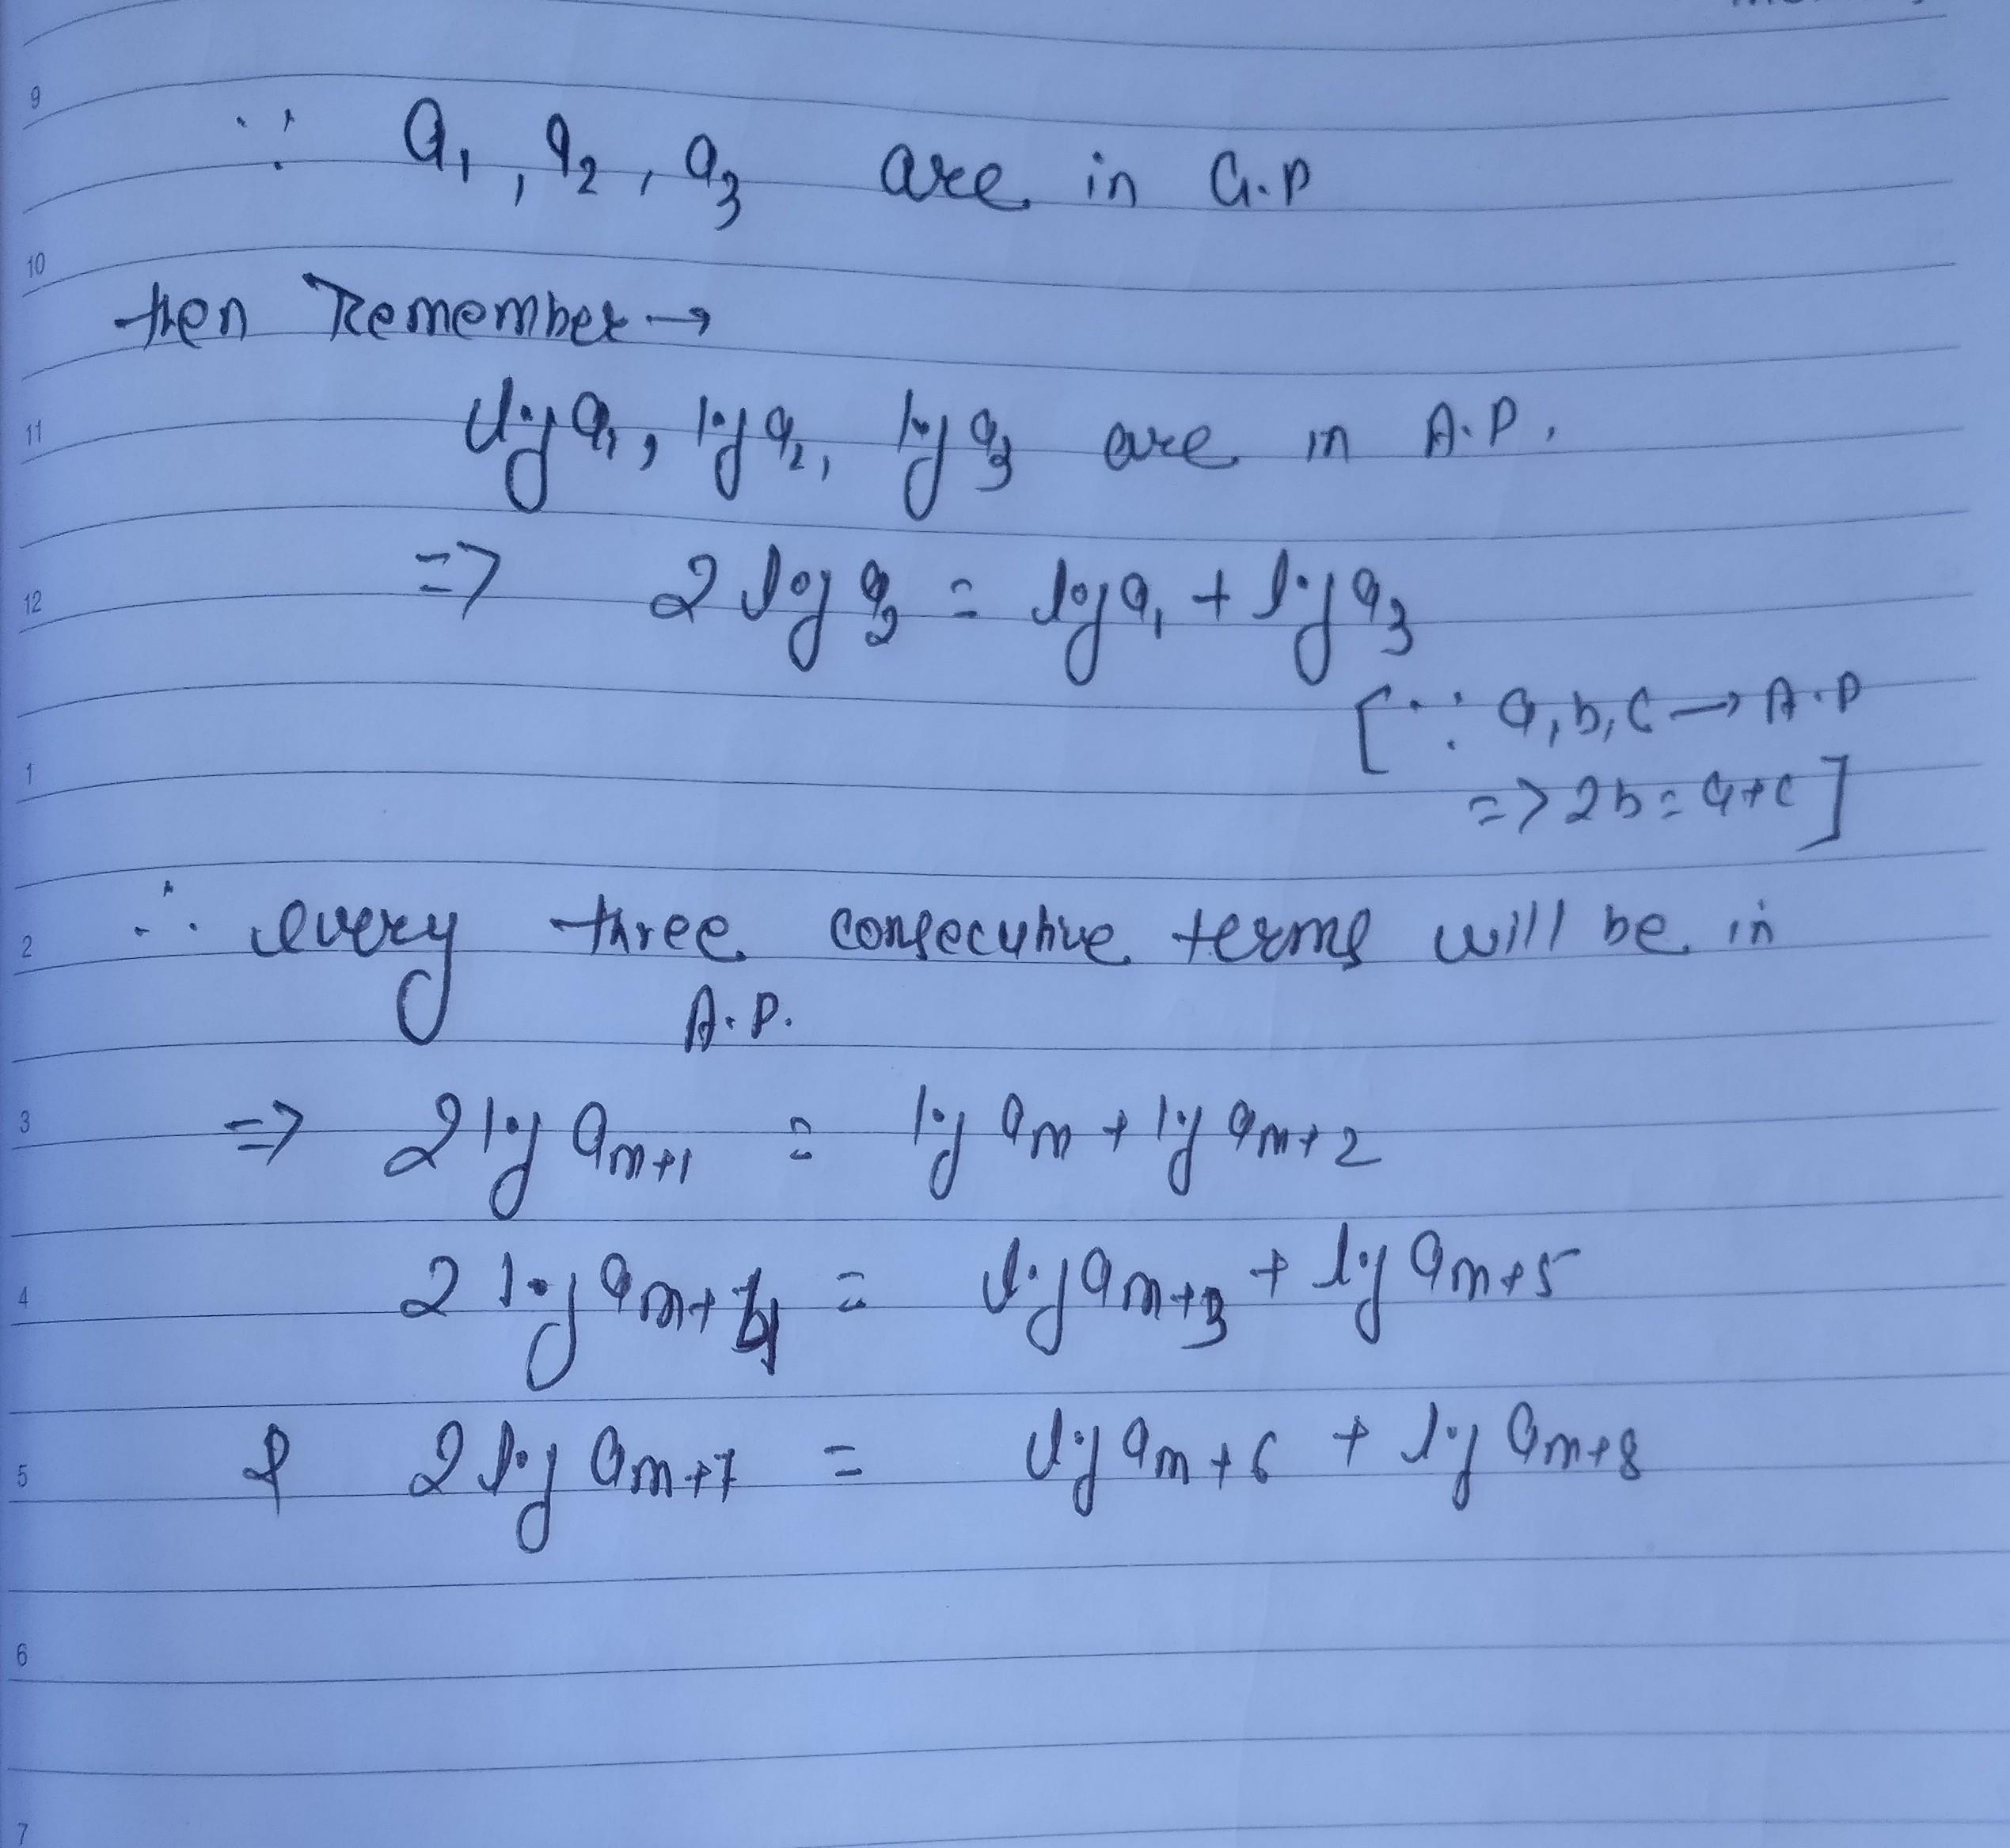 9
∵ a₁, a₂, a₃ are in G.P
10
then Remember →
11
log a₁, log a₂, log a₃ are in A.P.
⇒ 2 log a₂ = log a₁ + log a₃
12
[∵ a, b, c → A.P
1
⇒ 2b = a+c]
∴ every three consecutive terms will be in
2
A.P.
3
⇒ 2 log aₘ₊₁ = log aₘ + log aₘ₊₂
4
2 log aₘ₊₄ = log aₘ₊₃ + log aₘ₊₅
5
& 2 log aₘ₊₇ = log aₘ₊₆ + log aₘ₊₈
6
7